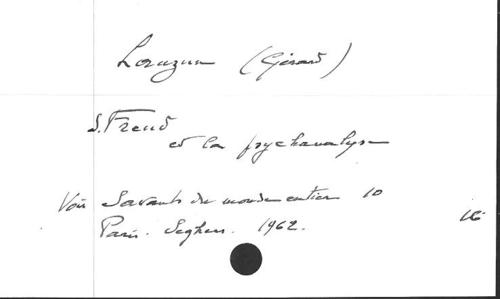 Lauzun (Gérard)
S. Freud
et la psychanalyse
Voir Savants du monde entier 10
Paris. Seghers. 1962.